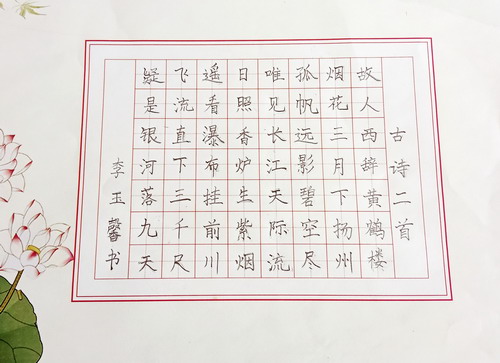 古诗二首
故人西辞黄鹤楼
烟花三月下扬州
孤帆远影碧空尽
唯见长江天际流
日照香炉生紫烟
遥看瀑布挂前川
飞流直下三千尺
疑是银河落九天
李玉馨书